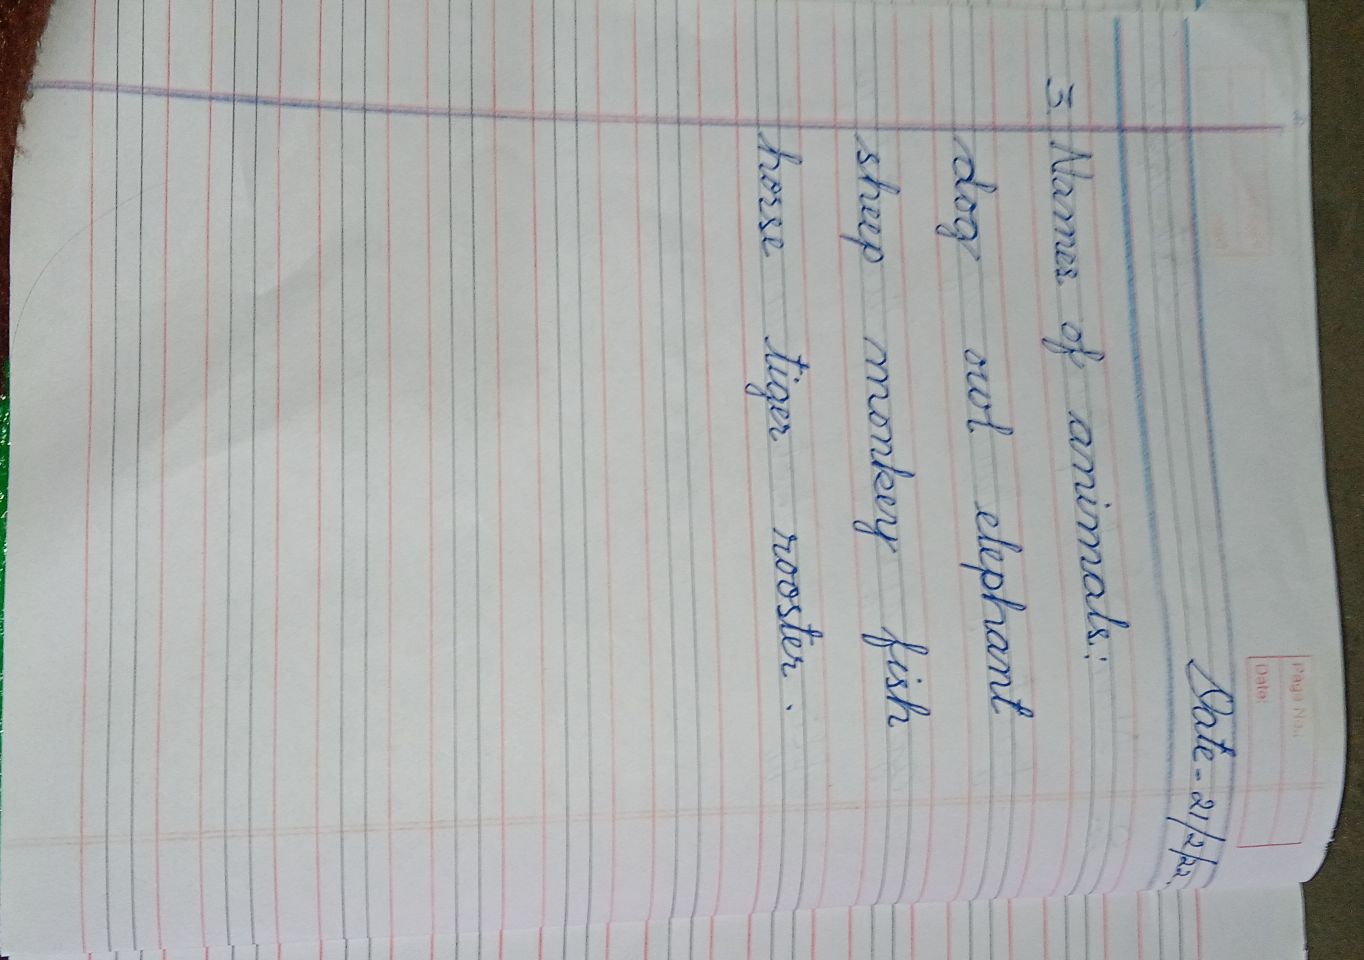 Page No.:
Date:
Date - 21/2/22.
3. Names of animals:
dog owl elephant
sheep monkey fish
horse tiger rooster.